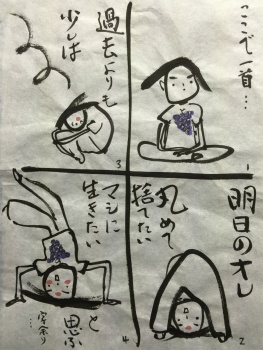 ここで一首…
1
明日のオレ
丸めて
捨てたい
2
過去よりも
少しは
3
マシに
生きたい
と思ふ
字余り…
4